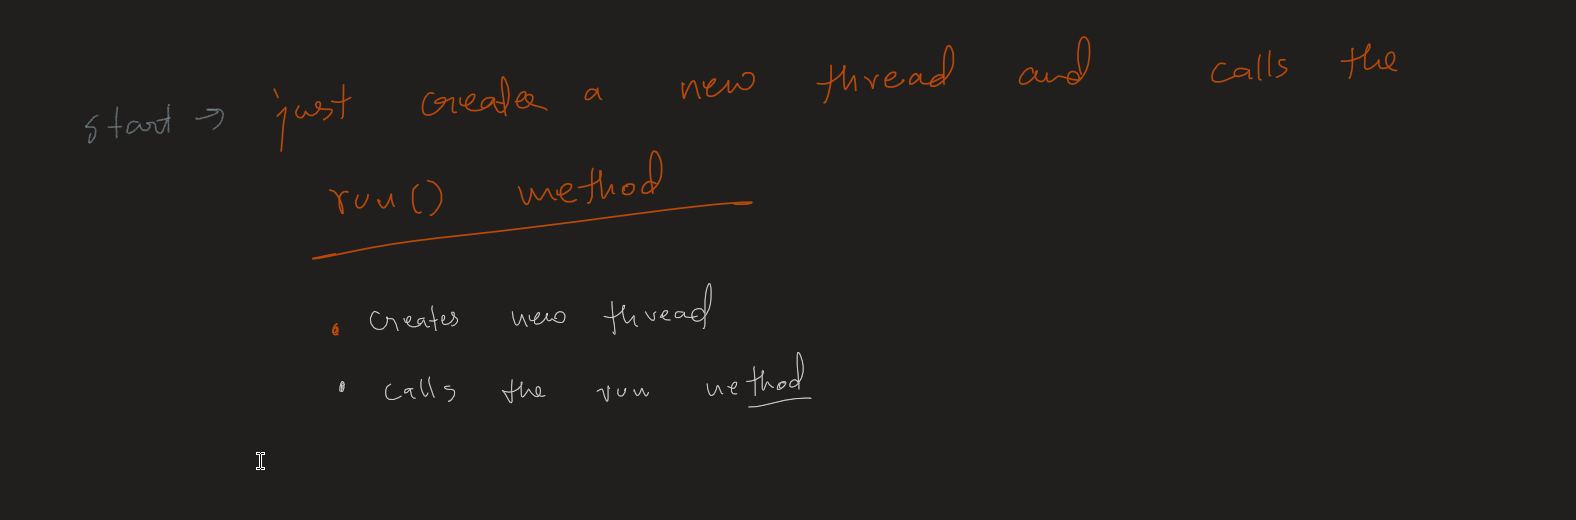 start → just creates a new thread and calls the
run() method
• creates new thread
• calls the run method